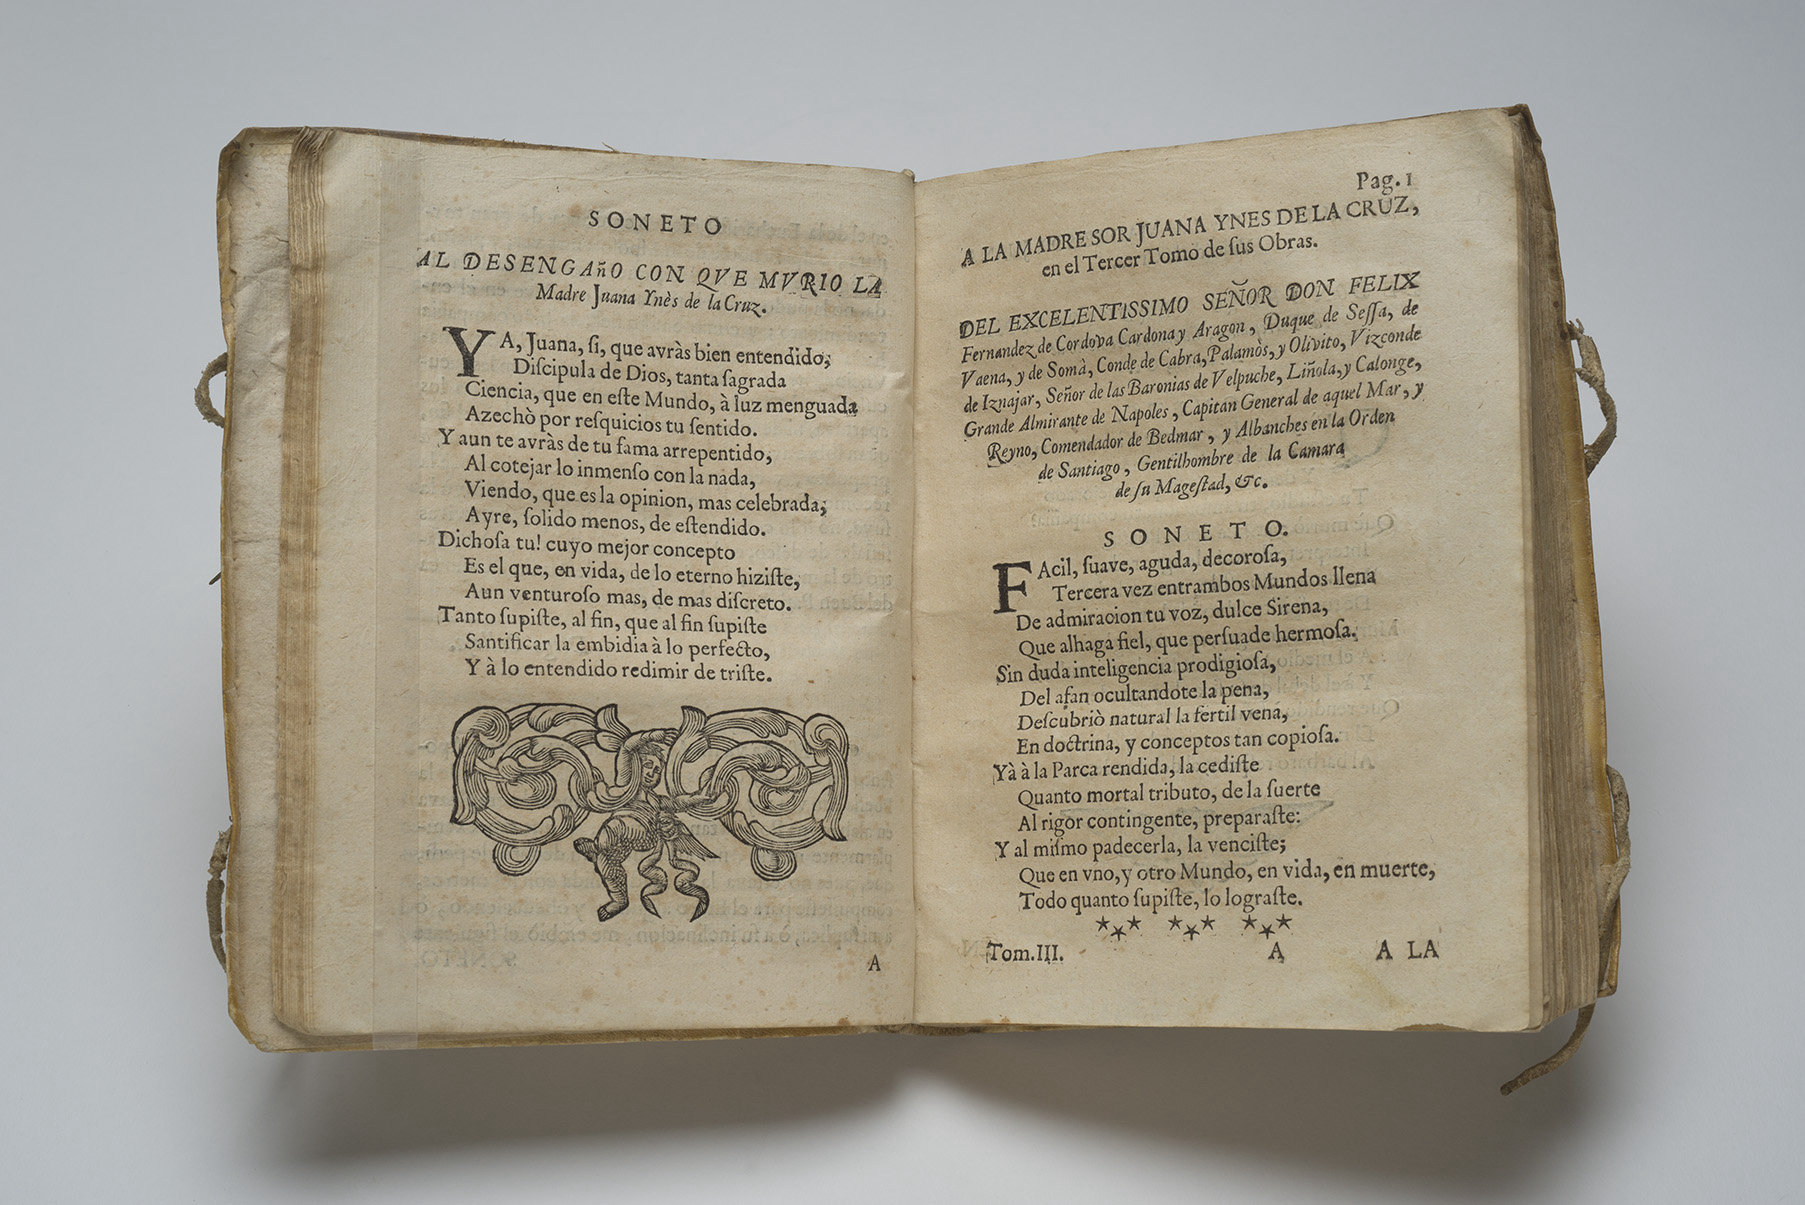 SONETO
AL DESENGAñO CON QVE MVRIO LA
Madre Juana Ynès de la Cruz.
YA, Juana, si, que avràs bien entendido,
Discipula de Dios, tanta sagrada
Ciencia, que en este Mundo, à luz menguada
Azechò por resquicios tu sentido.
Y aun te avràs de tu fama arrepentido,
Al cotejar lo inmenso con la nada,
Viendo, que es la opinion, mas celebrada,
Ayre, solido menos, de estendido.
Dichosa tu! cuyo mejor concepto
Es el que, en vida, de lo eterno hiziste,
Aun venturoso mas, de mas discreto.
Tanto supiste, al fin, que al fin supiste
Santificar la embidia à lo perfecto,
Y à lo entendido redimir de triste.
A
Pag. 1
A LA MADRE SOR JUANA YNES DE LA CRUZ,
en el Tercer Tomo de sus Obras.
DEL EXCELENTISSIMO SEÑOR DON FELIX
Fernandez de Cordova Cardona y Aragon, Duque de Sessa, de
Vaena, y de Somà, Conde de Cabra, Palamòs, y Olivito, Vizconde
de Iznajar, Señor de las Baronias de Velpuche, Liñola, y Calonge,
Grande Almirante de Napoles, Capitan General de aquel Mar, y
Reyno, Comendador de Bedmar, y Albanches en la Orden
de Santiago, Gentilhombre de la Camara
de su Magestad, &c.
SONETO.
FAcil, suave, aguda, decorosa,
Tercera vez entrambos Mundos llena
De admiracion tu voz, dulce Sirena,
Que alhaga fiel, que persuade hermosa.
Sin duda inteligencia prodigiosa,
Del afan ocultandote la pena,
Descubriò natural la fertil vena,
En doctrina, y conceptos tan copiosa.
Yà à la Parca rendida, la cediste
Quanto mortal tributo, de la suerte
Al rigor contingente, preparaste:
Y al mismo padecerla, la venciste;
Que en vno, y otro Mundo, en vida, en muerte,
Todo quanto supiste, lo lograste.
Tom. III. A A LA